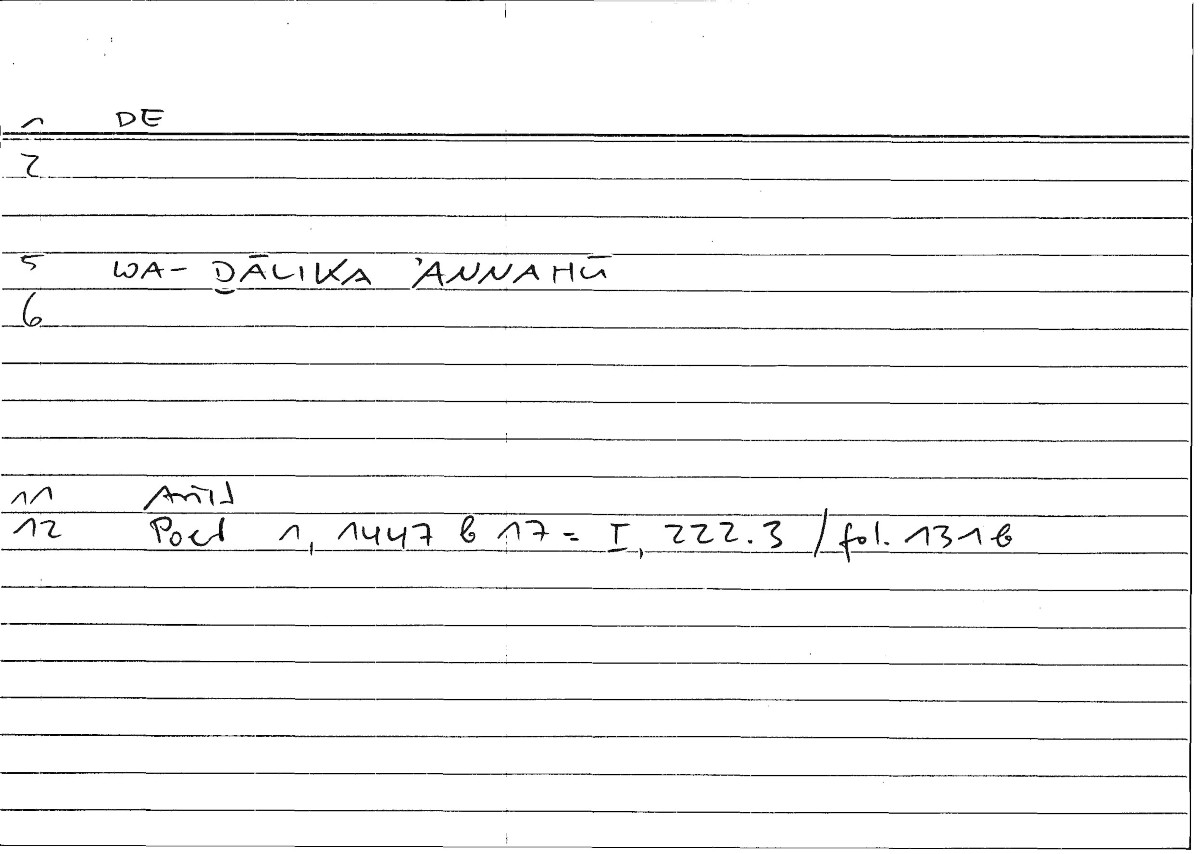 1 DE
2
5 WA- ḎĀLIKA ʾANNAHŪ
6
11 Arist
12 Poet 1, 1447 b 17 = I, 222.3 / fol. 131 b